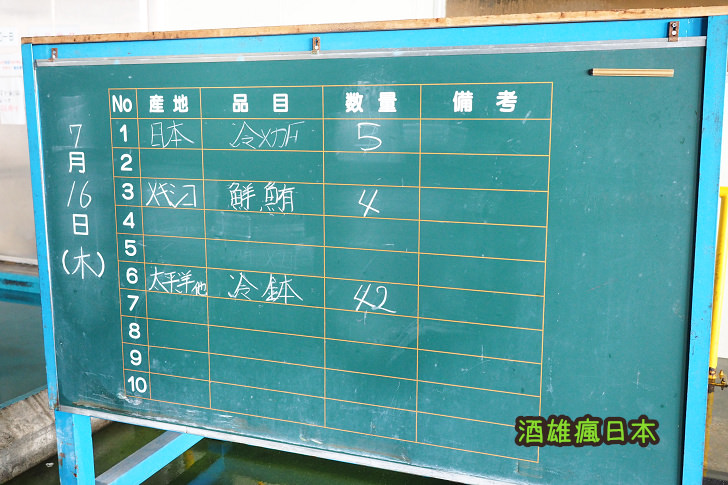 7月16日(木)
No 産地 品目 数量 備考
1 日本 冷メカ 5
2
3 メキシコ 鮮鮪 4
4
5
6 太平洋他 冷鉢 42
7
8
9
10
酒雄瘋日本